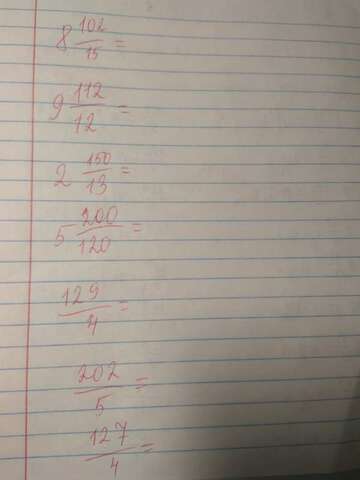 8 102/15 =
9 112/12 =
2 150/13 =
5 200/120 =
129/4 =
202/5 =
127/4 =